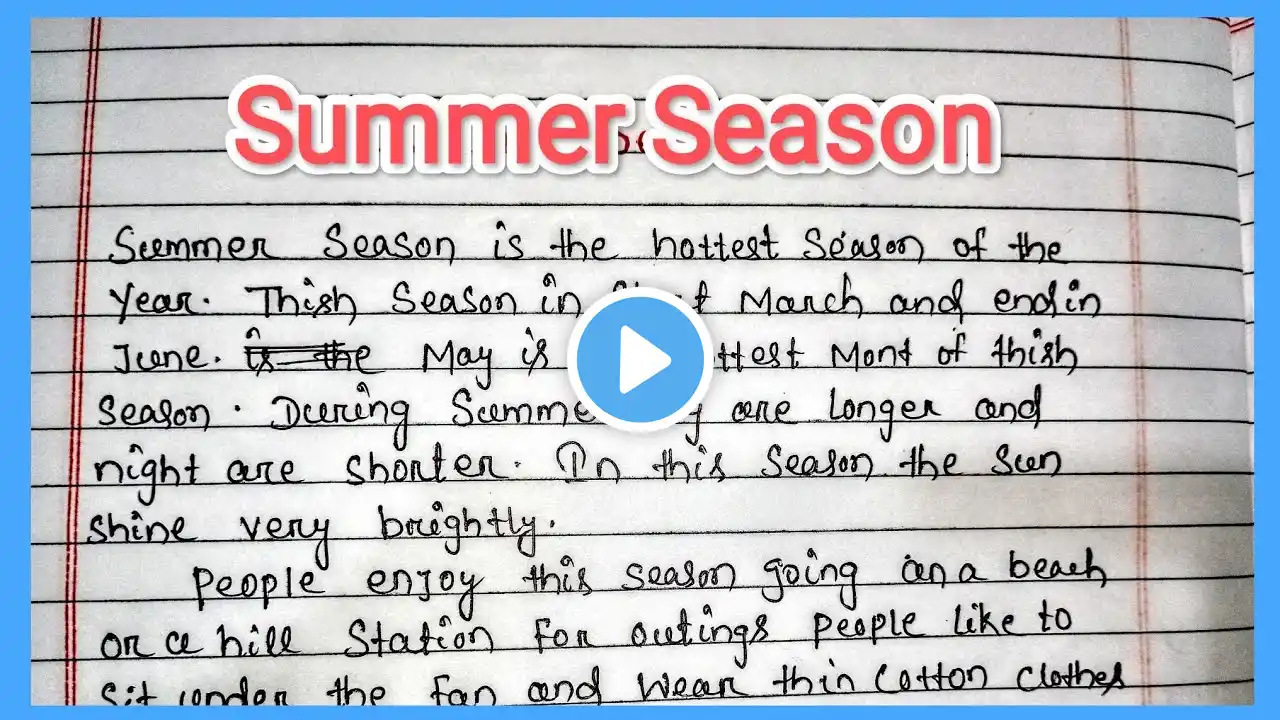 Summer Season
Summer Season is the hottest Season of the
Year. Thish Season in March and end in
June. is the May is Mont of thish
Season. During are Longer and
night are shorter. In this Season the Sun
shine very brightly.
People enjoy this season going on a beach
or a hill Station For outings People Like to
Sit under the fan and Wear thin Cotton Clothes